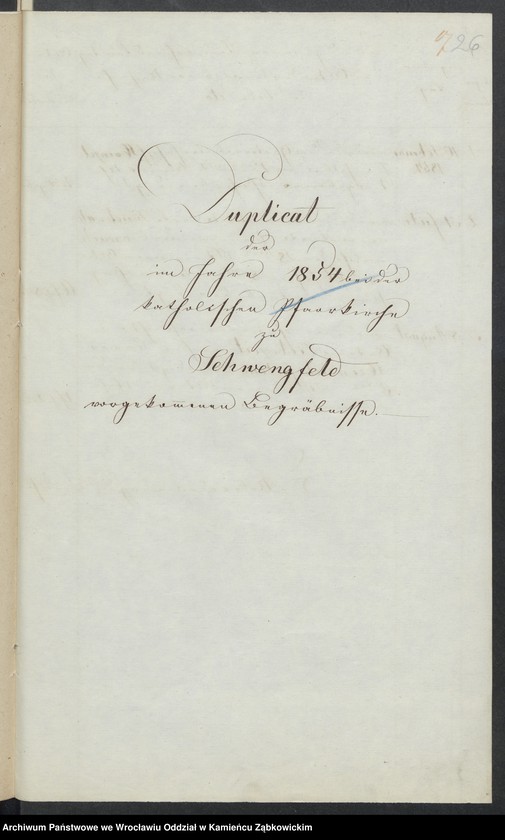 726
Duplicat
der
im Jahre 1854 bei der
katholischen Pfarrkirche
zu
Schwengfeld
vorgekom̅enen Begräbnisse.
Archiwum Państwowe we Wrocławiu Oddział w Kamieńcu Ząbkowickim